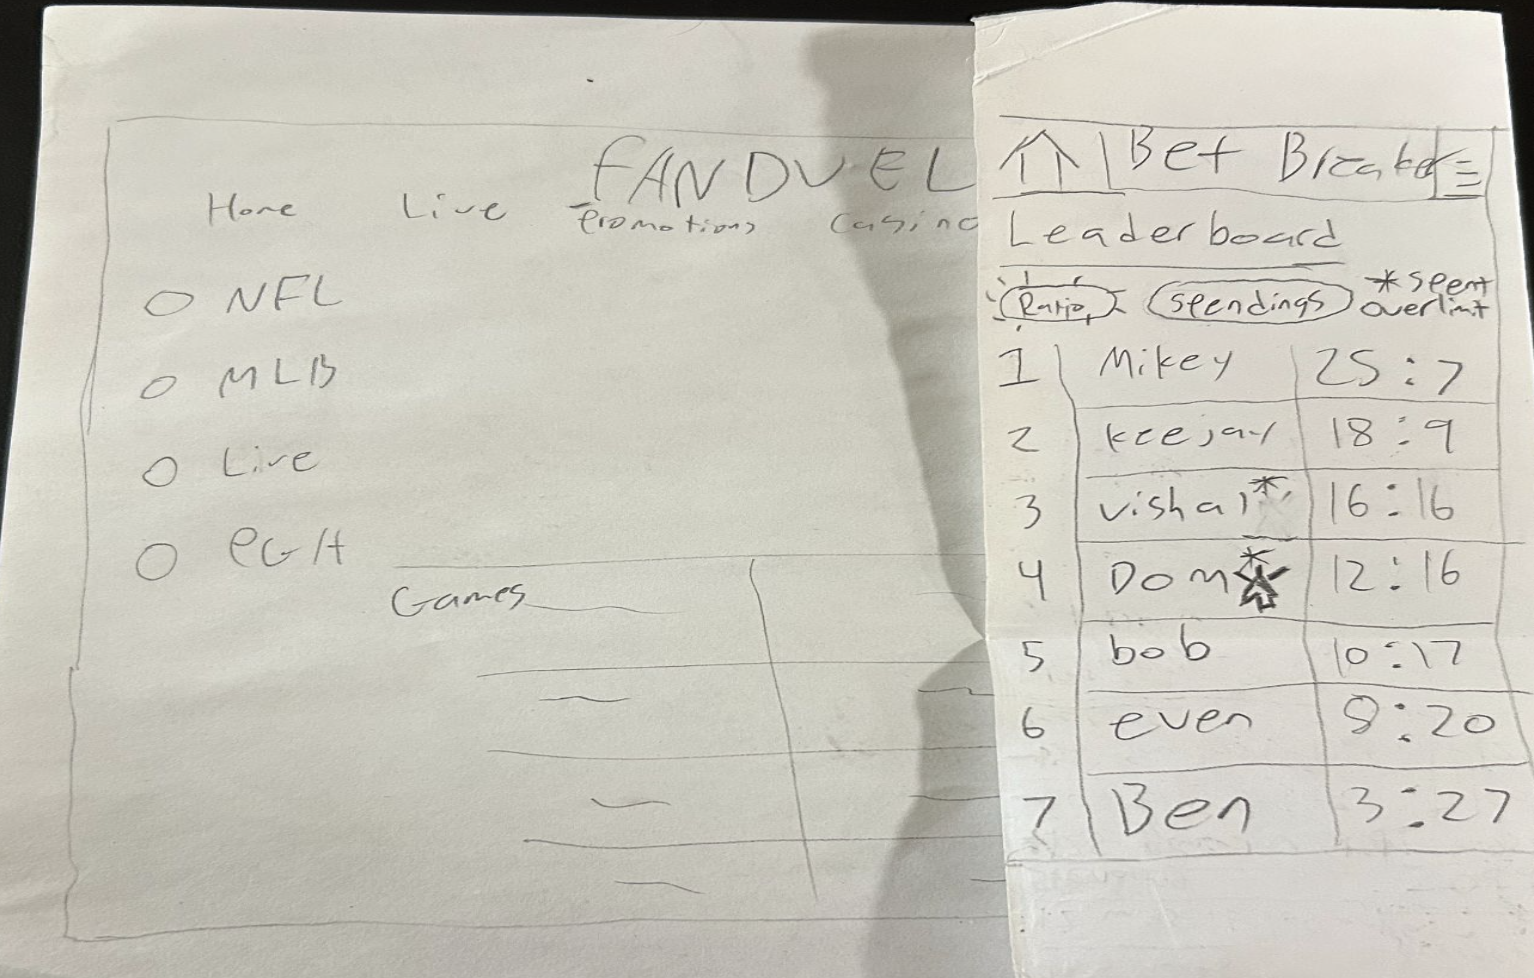 FANDUEL
Home Live Promotions Casino
NFL
MLB
Live
PGA
Games
Bet Breaker
Leaderboard
Ratio Spendings * Spent
overlimit
1 Mikey 25:7
2 Keejay 18:9
3 Vishal* 16:16
4 Dom* 12:16
5 bob 10:17
6 even 8:20
7 Ben 3:27